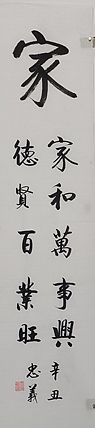 家
家和萬事興
德賢百業旺
辛丑
忠義